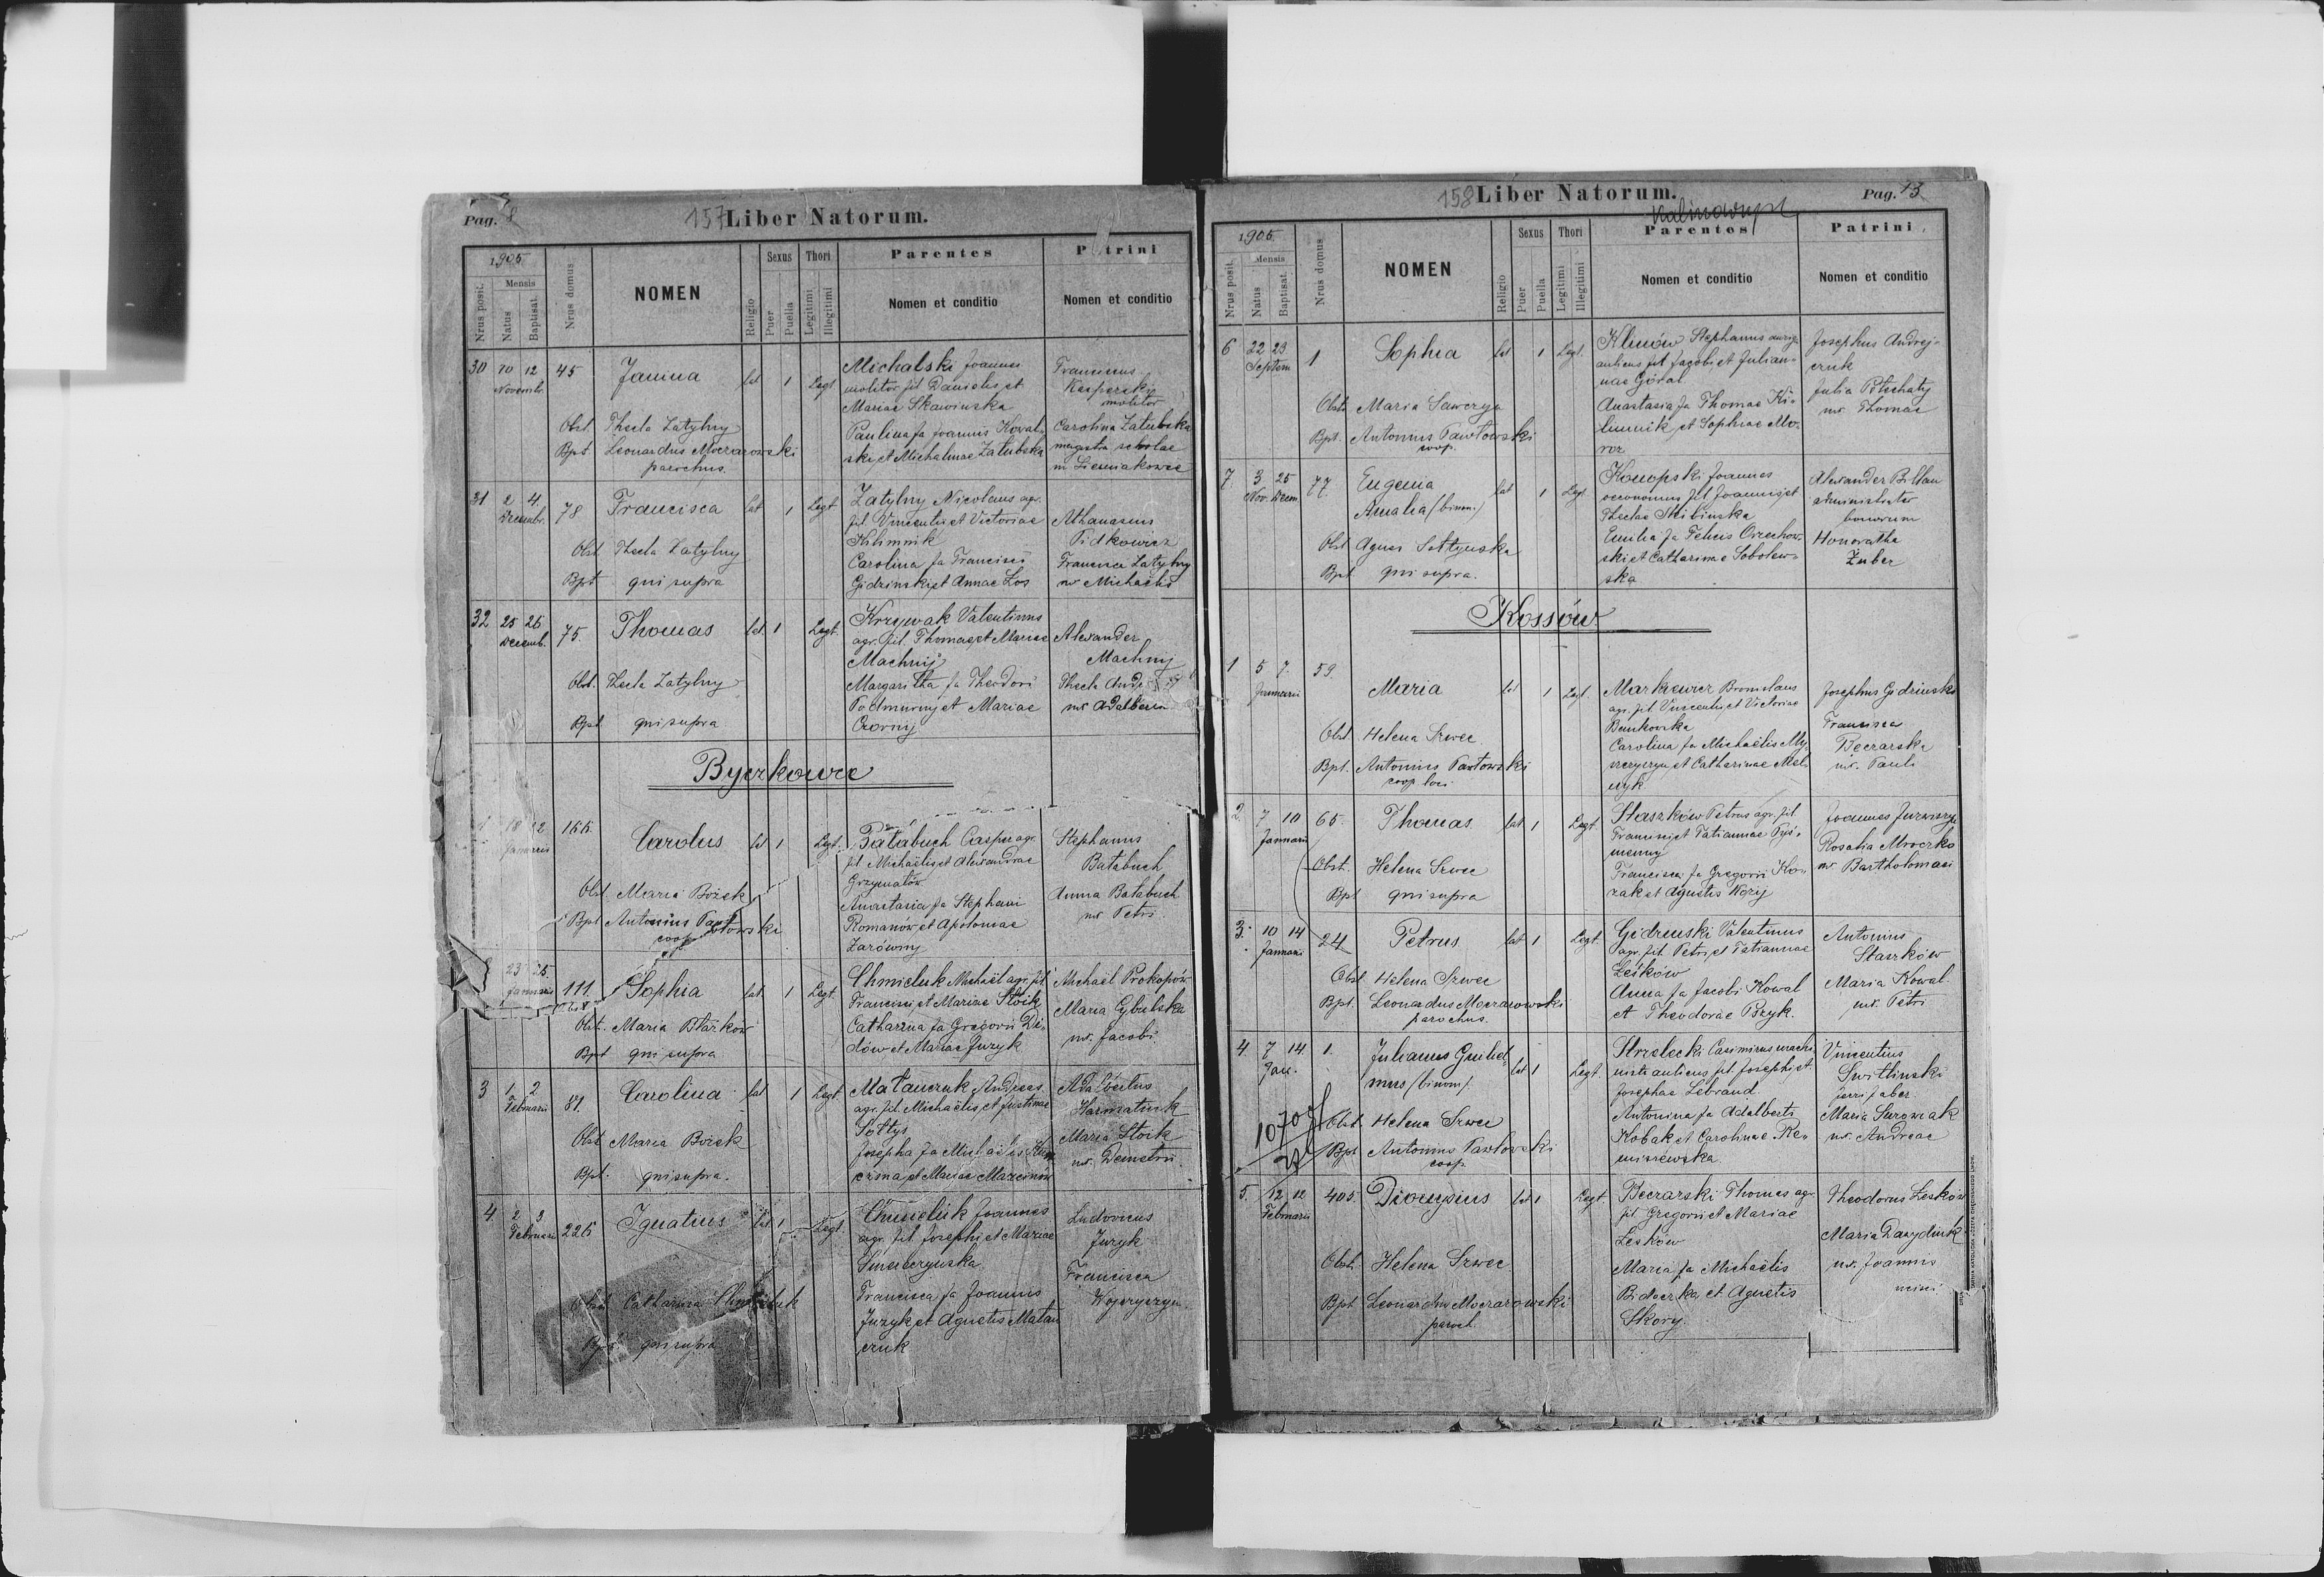 Pag. 8 157 Liber Natorum.
1905
Nrus posit.
Mensis
Natus
Baptisat.
Nrus domus
NOMEN
Religio
Sexus
Puer
Puella
Thori
Legitimi
Illegitimi
Parentes
Nomen et conditio
Patrini
Nomen et conditio
30 10 12 45 Janina lat 1 Legt Michalski Joannes Franciscus
Novembr. molitor fil Danielis et Kasperski
Mariae Skawinska molitor
Obst. Thecla Zatylny Paulina fa Joannis Koval- Carolina Zatubska
Bpt. Leonardus Moczarowski ski et Michalinae Zatubska magistra scholae
parochus. in Liesniakowce
31 2 4 78 Francisca lat 1 Legt Zatylny Nicolaus agr.
Decembr. fil Vincentii et Victoriae Athanasius
Obst Thecla Zatylny Kilimnik Pidkowicz
Carolina fa Francisci Francisca Zatylny
Bpt qui supra Gidzinski et Annae Los ux Michaelis
32 25 26 75. Thomas lat 1 Legt. Krzywak Valentinus
Decemb. agr. fil Thomae et Mariae Alexander
Machnij Machnij
Obst. Thecla Zatylny Margaritha fa Theodori Thecla
Podmurny et Mariae ux Adalberti
Bpt qui supra Czorny
Byczkowce
18 166. Carolus lat 1 Legt. Batabuch Casper agr. Stephanus
Januarii fil Michaelis et Alexandrae Batabuch
Grzymatów
Obst. Maria Bożek Anastasia fa Stephani Anna Batabuch
Bpt Antonius Pawłowski Romanów et Apoloniae ux Petri
coop Zarówny
23 25. 111 Sophia lat. 1 Legt Chmieluk Michaël agr. fil Michaël Prokopów
Januarii Francisci et Mariae Stoik Maria Cybulska
Obst. Maria Btazków Catharina fa Gregorii Di- ux. Jacobi
Bpt qui supra dów et Mariae Juzyk
3 1 2 81. Carolina lat 1 Legt. Matanczuk Andreas Adalbertus
Februarii agr. fil Michaëlis et Justinae Harmatiuk
Obst Maria Bożek Sottys Maria Stoik
Josepha fa Michaelis ux. Demetrii.
Bpt. qui supra. czma et Mariae Marcinów
4 2 3 226 Ignatius lat 1 Legt. Chmieluk Joannes Ludovicus
Februarii agr. fil. Josephi et Mariae Juzyk
Smerczynska Francisca
Obst Catharina Chmieluk Francisca fa Joannis
Juzyk et Agnetis Matan
Bpt qui supra czuk
158 Liber Natorum. Pag. 13
1905
Nrus posit.
Mensis
Natus
Baptisat.
Nrus domus
NOMEN
Religio
Sexus
Puer
Puella
Thori
Legitimi
Illegitimi
Parentes
Nomen et conditio
Patrini
Nomen et conditio
6 22 23 1 Sophia lat 1 Legt. Klimów Stephanus auriga Josephus Andrej-
Septem aulicus fil Jacobi et Julian- czuk
nae Góral Julia Potechaty
Obst. Maria Sawczyn Anastasia fa Thomae Ki- ux. Thomae
Bpt. Antonius Pawłowski limnik et Sophiae Mo-
coop. roz
7. 3 25 77. Eugenia lat 1 Legt Konopski Joannes Alexander Biltan
Nov. Decem. Amalia /binom/ oeconomus fil Joannis et administrator
Theclae Skibinska bonorum
Obst Agnes Sottynska Emilia fa Felicis Orzechow- Honoratha
Bpt qui supra. ski et Catharinae Sobolew- Zuber
ska
Kossów
1 5 7. 59. Maria lat 1 Legt. Markiewicz Bronislaus Josephus Gidzinski
Januarii agr. fil Vincentii et Victoriae Francisca
Bunkowska Beczarska
Obst Helena Szwec Carolina fa Michaëlis My- ux. Pauli
Bpt. Antonius Pawłowski czyczyn et Catharinae Mel-
coop loci nyk
2. 7 10 65 Thomas lat 1 Legt. Staszków Petrus agr. fil
Januarii Francisci et Tatiannae Pyś- Rosalia Mroczko
menny ux. Bartholomaei
Obst. Helena Szwec Francisca fa Gregorii Ko-
Bpt qui supra zak et Agnetis Wozy
3. 10 14 24 Petrus lat 1 Legt. Gidzinski Valentinus Antonius
Januarii agr. fil. Petri et Tatiannae Staszków
Leśków
Obst Helena Szwec Anna fa Jacobi Kowal Maria Kowal
Bpt. Leonardus Moczarowski et Theodorae Pszyk. ux. Petri
parochus.
4. 7 14 1. Julianus Guilel- lat 1 Legt. Strzelecki Casimirus machi- Vincentius
Jan. mus /binom/. nista aulicus fil Josephi et Switlinski
Josephae Lebrand ferri faber.
Obst. Helena Szwec Antonina fa Adalberti Maria Surowiak
Bpt Antonius Pawłowski Kobak et Carolinae Re- ux. Andreae
coop. niszewska
5. 12 12 405. Dionysius lat 1 Legt Beczarski Thomas agr. Theodorus Leśków
Februarii fil Gregorii et Mariae
Leśków Maria Dawydiuk
Obst. Helena Szwec Maria fa Michaëlis ux. Joannis
Bpt Leonardus Moczarowski Bidoczka et Agnetis
paroch. Skory